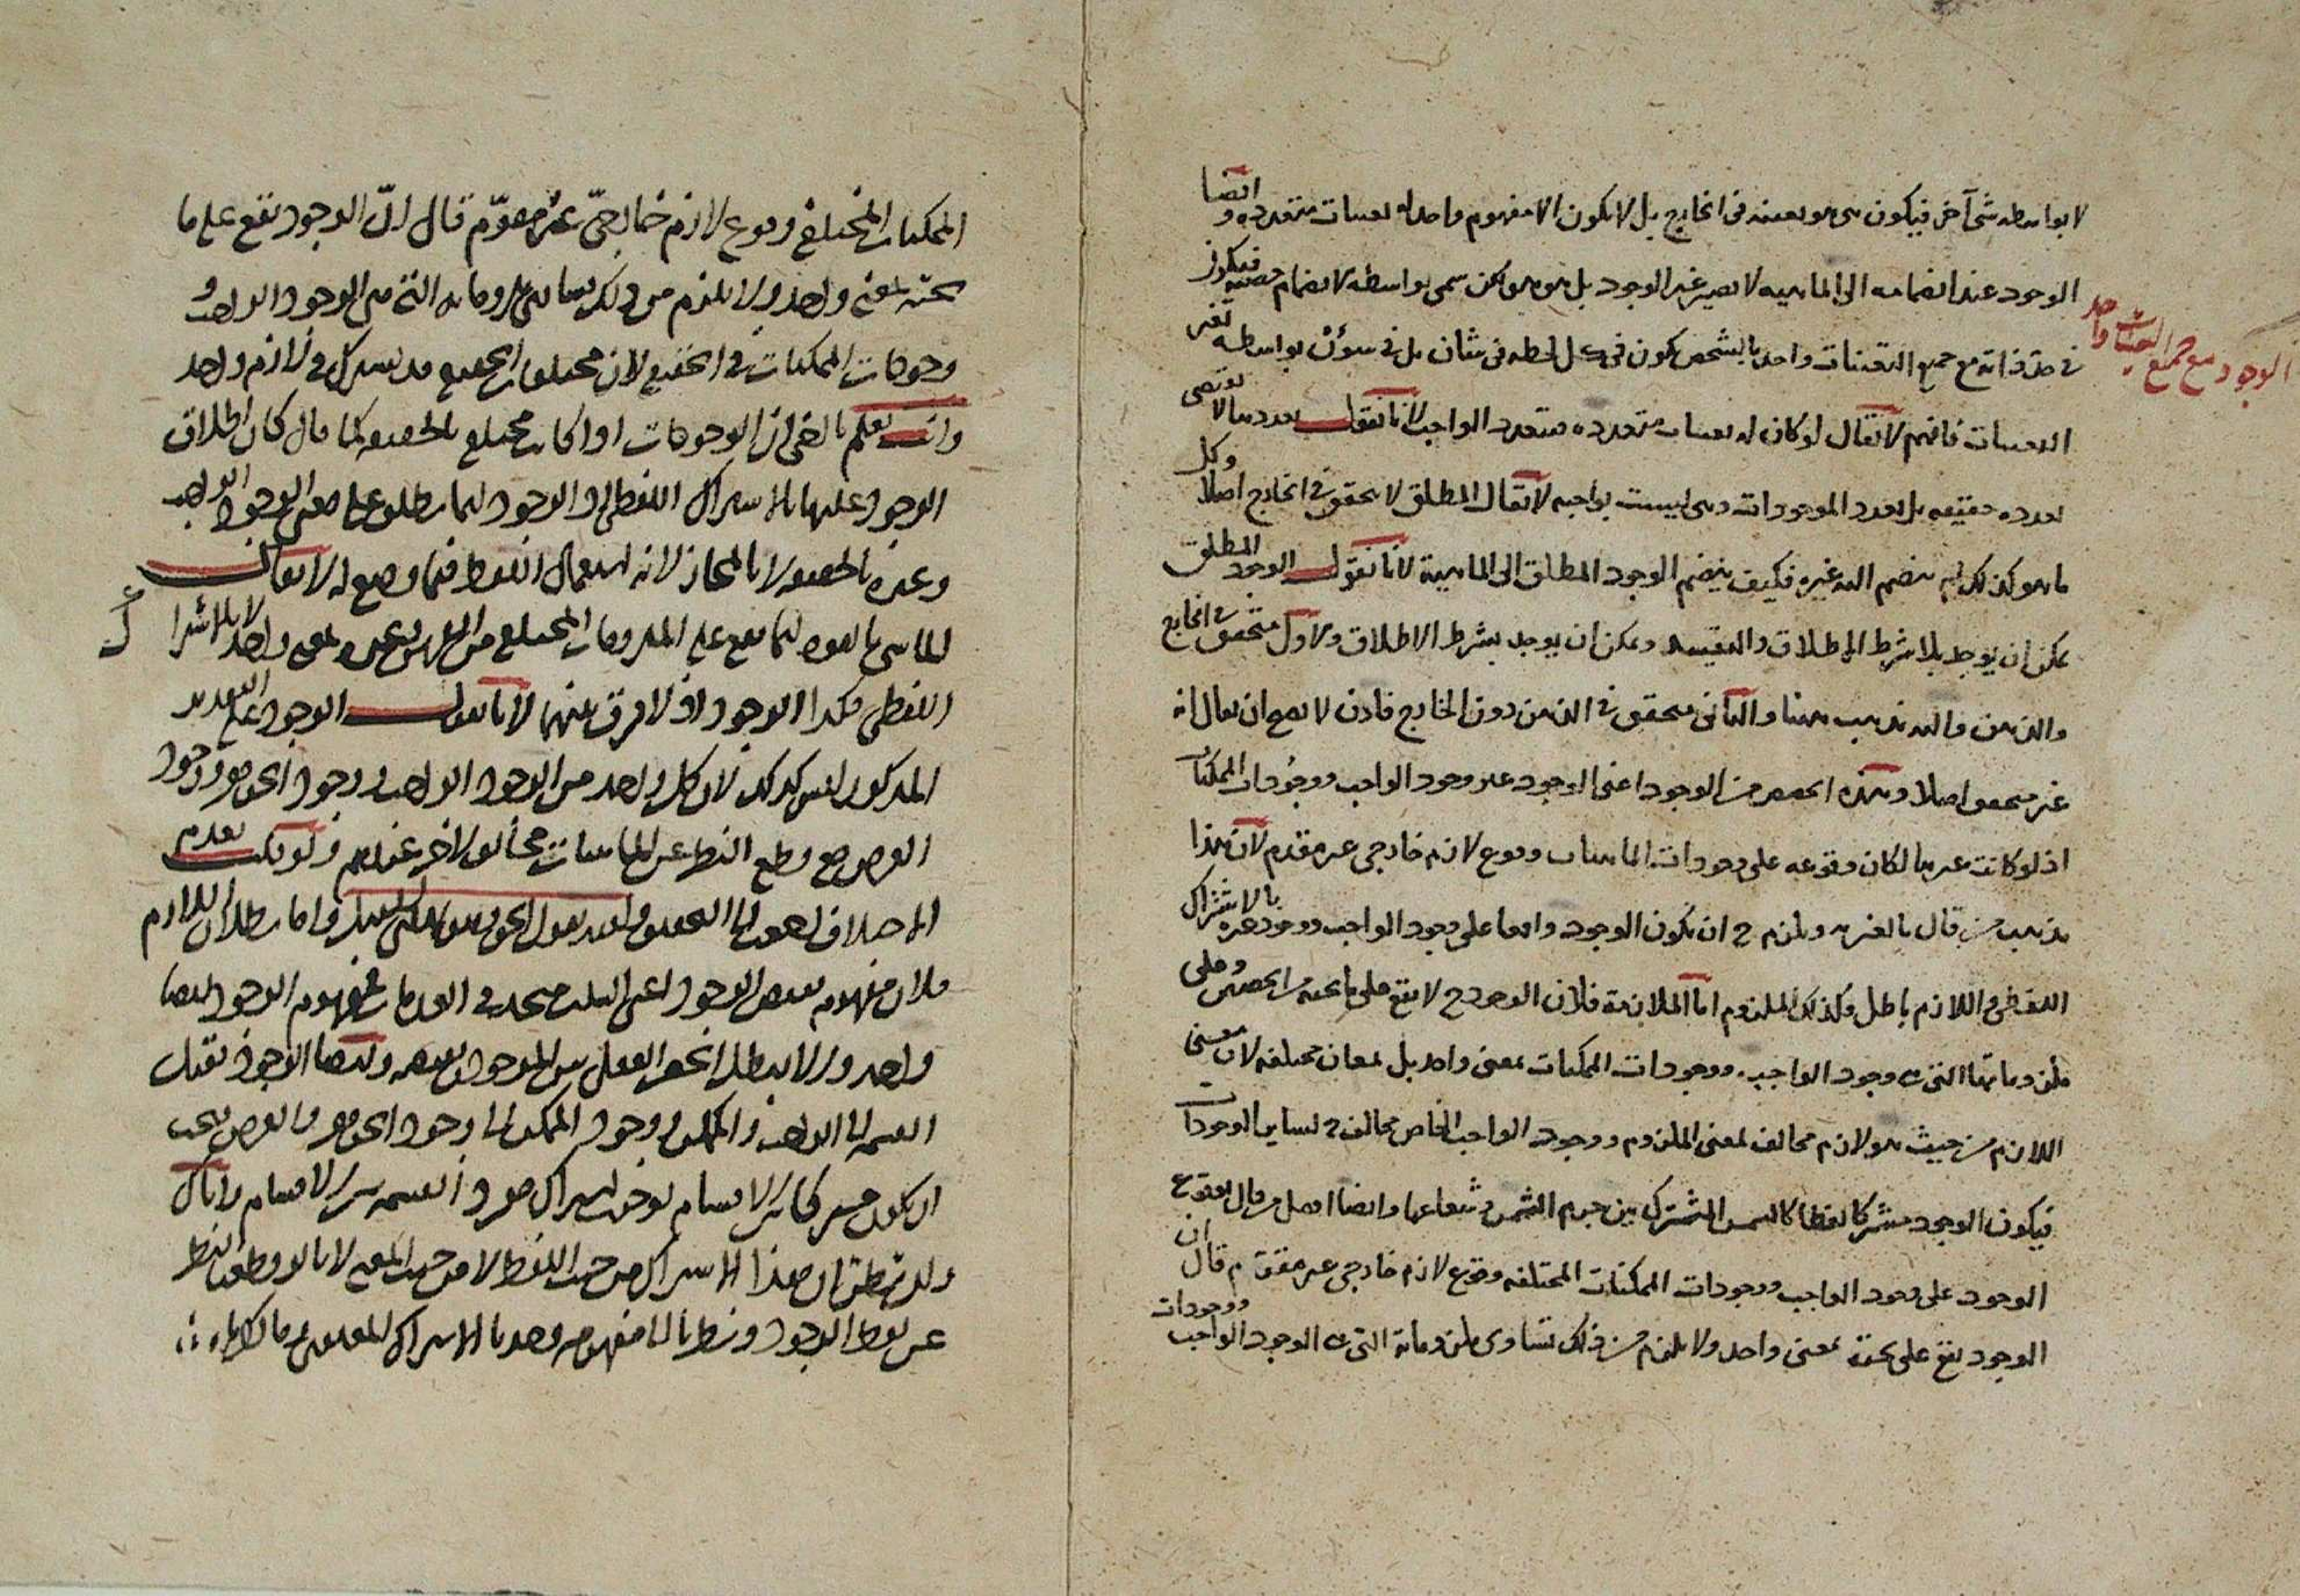 لا بواسطه شئ آخر فيكون هى هو بعينه فى الخارج بل لا يكون الا مفهوم واحد له تعينات متعدده و ايضا
الوجود عند انضمامه الى الماهيه لا يصير غير الوجود بل هو هو لكن سمى بواسطه الانضمام حصه فيكون
فى حد ذاته مع جميع التعينات واحد بالشخص يكون فى كل لحظه فى شان بل فى شؤن بواسطه تغير
الوجود مع جميع التعينات واحد
التعينات فافهم لا يقال لو كان له تعينات متعدده فيتعدد الواجب لانا نقول تعددها لا يقتضى
تعدده حقيقه بل تعدد الموجودات وهى ليست بواجبه لا يقال المطلق لا يتحقق فى الخارج اصلا وكل
ما هو كذلك لم ينضم اليه غيره فكيف ينضم الوجود المطلق الى الماهية لانا نقول الوجود المطلق
يمكن ان يوجد بلا شرط الاطلاق والتقييد ويمكن ان يوجد بشرط الاطلاق والاول متحقق فى الخارج
والذهن واليه نذهب ههنا والثانى متحقق فى الذهن دون الخارج فاذن لا يصح ان يقال انه
غير متحقق اصلا وهذه الحصص من الوجود اعنى الوجود عين وجود الواجب ووجودات الممكنات
اذ لو كانت غيرها لكان وقوعه على وجودات الماهيات وقوع لازم خارجى غير مقوم لان هذا
مذهب من قال بالغيريه ويلزم ح ان يكون الوجود واقعا على وجود الواجب ووجود غيره بالاشتراك
اللفظى واللازم باطل وكذلك الملزوم اما الملازمة فلان الوجود ح لا يقع على ما تحته من الحصص وعلى
ملزوماتها التى هى وجود الواجب ووجودات الممكنات بمعنى واحد بل بمعان مختلفه لان معنى
اللازم من حيث هو لازم مخالف لمعنى الملزوم ووجود الواجب الخاص مخالف ح لساير الوجودات
فيكون الوجود مشتركا لفظا كالشمس المشترك بين جرم الشمس وشعاعها وايضا افضل من قال بوقوع
الوجود على وجود الواجب ووجودات الممكنات المختلفه وقوع لازم خارجى غير مقوم قال ان
الوجود يقع على تحته بمعنى واحد ولا يلزم من ذلك تساوى ملزوماته التى هى الوجود الواجب ووجودات
الممكنات المختلفة وقوع لازم خارجىّ غير مقوّم قال انّ الوجود يقع على ما
تحته بمعنى واحد ولا يلزم من ذلك تساوى ملزوماته التى هى الوجود الواجب و
وجودات الممكنات فى الحقيقه لان مختلفات الحقيقه قد يشترك فى لازم واحد
وانت تعلم يا اخى ان الوجودات اذا كانت مختلفه بالحقيقه كما قال كان اطلاق
الوجود عليها بالاشتراك اللفظى اذ الوجود انما يطلق على معنى الوجود الواجب
وغيره بالحقيقه لا بالمجاز لانه استعمال اللفظ فيما وضع له لا يقال
الماشى بالقوه انما يقع على الملزومات المختلفه من الفرس وغيره بمعنى واحد لا بالاشتراك
اللفظى فكذا الوجود اذ لا فرق بينهما لانا نقول الوجود على التقدير
المذكور ليس كذلك لان كل واحد من الوجود الواجب ووجود الجوهر ووجود
العرض مع قطع النظر عن الماهيات مخالف للاخر عندهم
واما بطلان اللازم
فلان مفهوم نقيض الوجود اعنى السلب متحد فى العدمات فمفهوم الوجود ايضا
واحد والا لبطل الحصر العقلى بين الموجود ونقيضه وايضا الوجود يقبل
القسمه الى الواجب والممكن ووجود الممكن الى وجود الجوهر والعرض فيجب
ان يكون مشتركا بين الاقسام لوجوب اشتراك مورد القسمه بين الاقسام واياك
وان تظن ان هذا الاشتراك من حيث اللفظ لا من حيث المعنى لانا لو قطعنا النظر
عن لفظ الوجود ونظرنا الى مفهومه وجدنا الاشتراك المعنوى